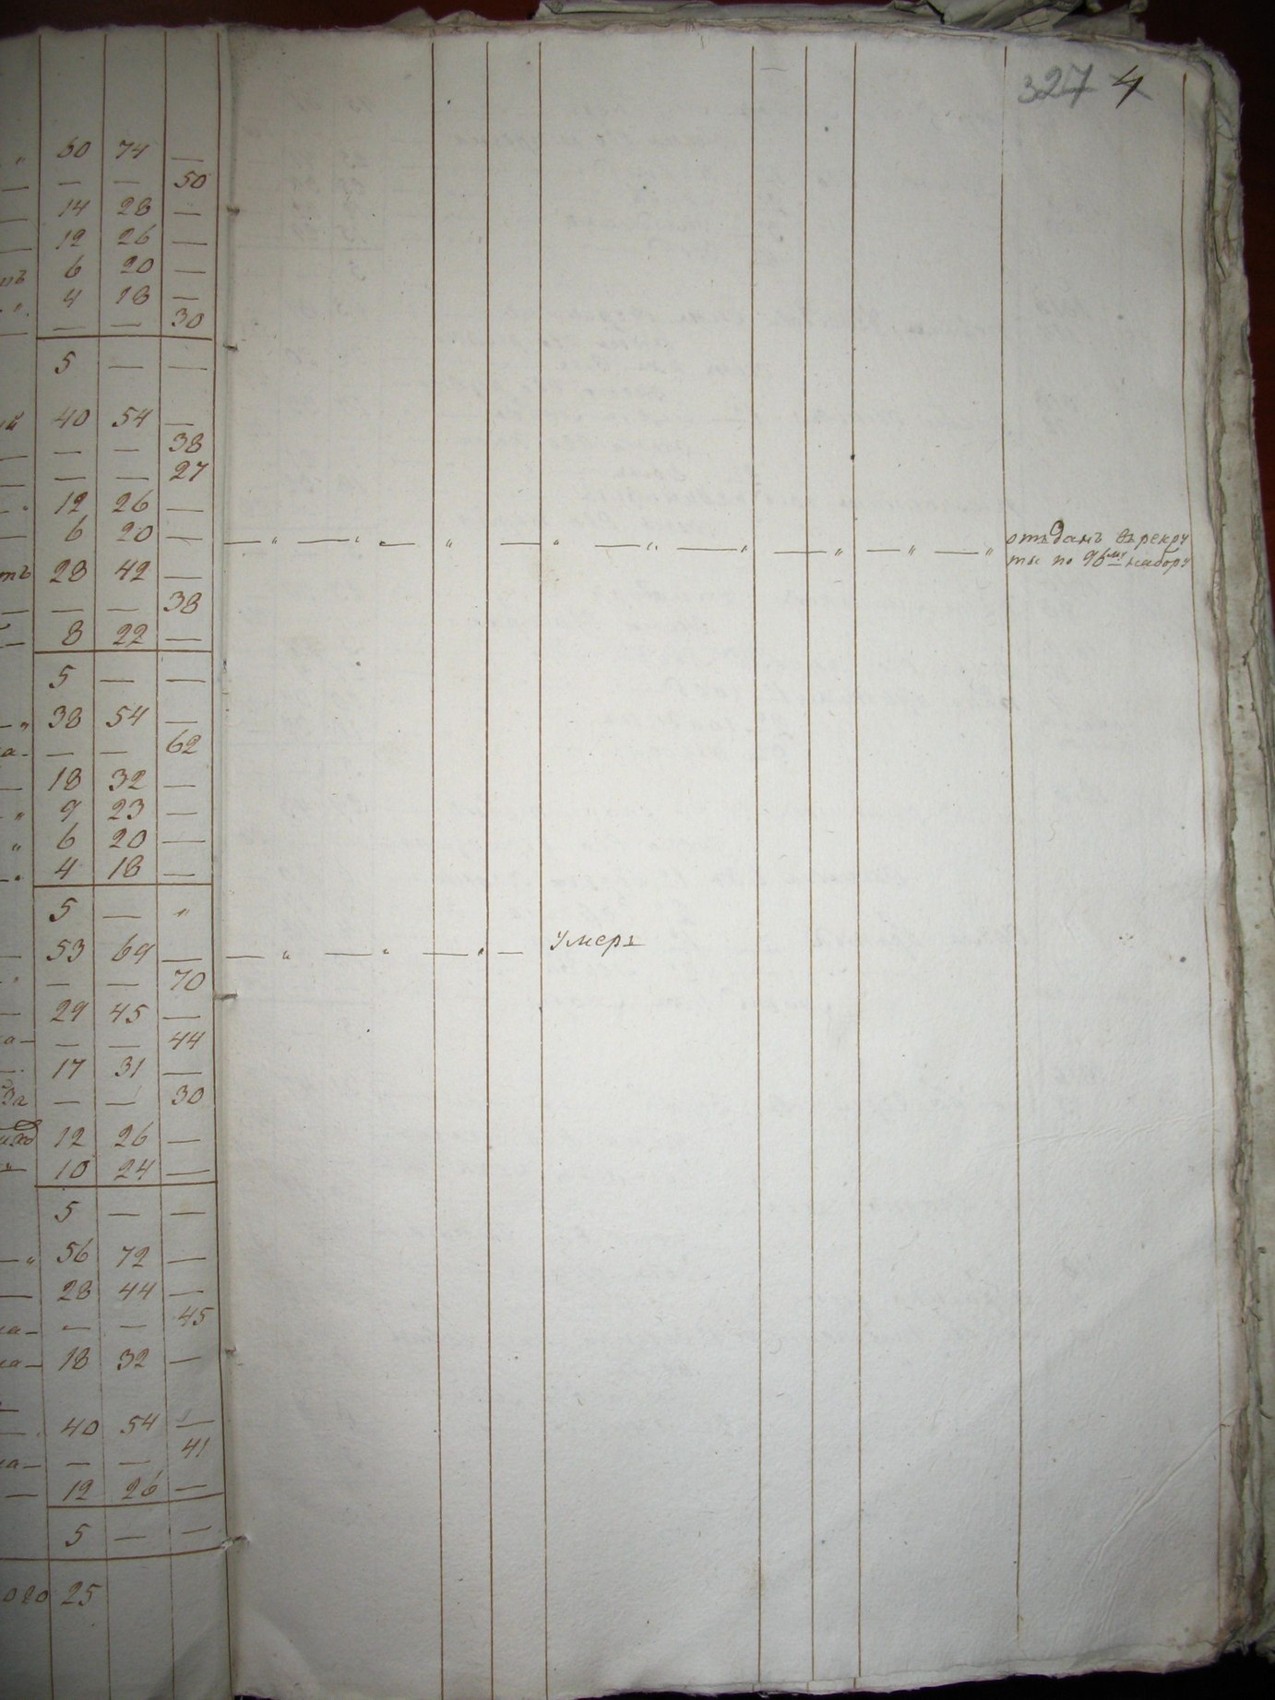 327 4
60 74 —
— — 50
14 28 —
12 26 —
6 20 —
4 18 —
— — 30
5 — —
40 54 —
— — 38
— — 27
12 26 —
6 20 —
отъданъ въ рекру
ты по 96му набору
28 42 —
— — 38
8 22 —
5 — —
38 54 —
— — 62
18 32 —
9 23 —
6 20 —
4 18 —
5 — "
53 69 —
умеръ
— — 70
29 45 —
— — 44
17 31 —
— — 30
12 26 —
10 24 —
5 — —
56 72 —
28 44 —
— — 45
18 32 —
40 54 —
— — 41
12 26 —
5 — —
25